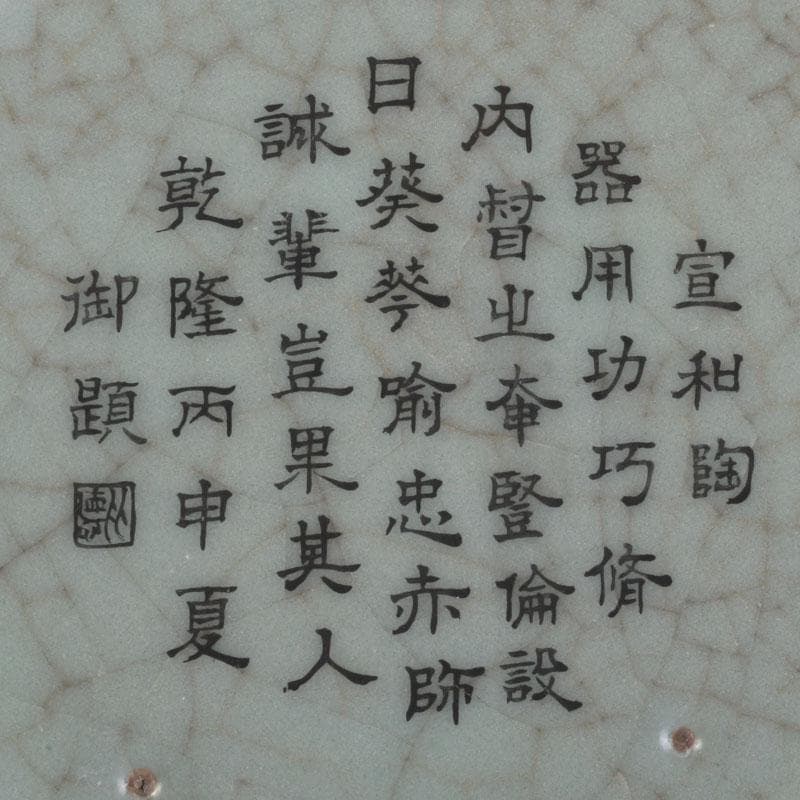 宣和陶
器用功巧脩
内督㞢奄豎倫設
日葵華喻忠赤師
誠輩豈果其人
乾隆丙申夏
御題